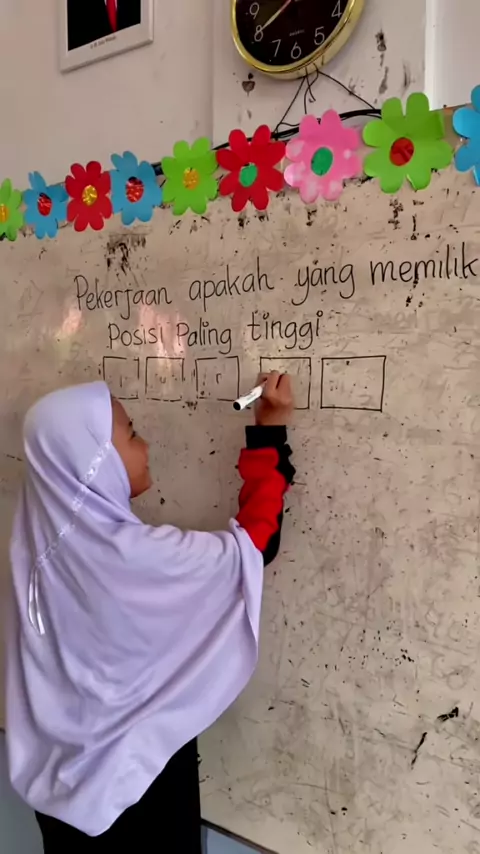 9
8
7
6
5
4
Pekerjaan apakah yang memilik
Posisi Paling tinggi
r